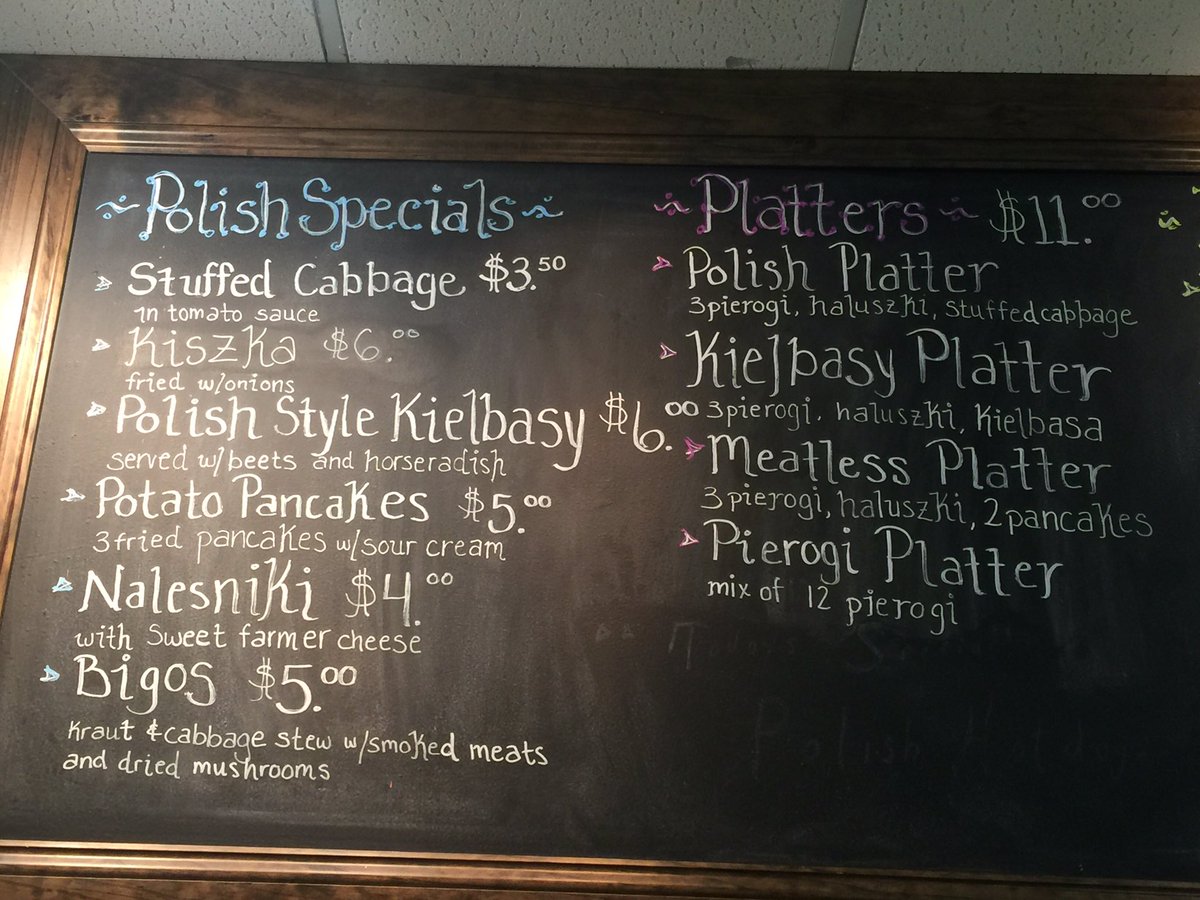 ~Polish Specials~
Stuffed Cabbage $3.50
in tomato sauce
Kiszka $6.00
fried w/onions
Polish Style Kielbasy $6.00
served w/beets and horseradish
Potato Pancakes $5.00
3 fried pancakes w/sour cream
Nalesniki $4.00
with sweet farmer cheese
Bigos $5.00
Kraut & cabbage stew w/smoked meats
and dried mushrooms
~Platters~ $11.00
Polish Platter
3 pierogi, haluszki, stuffed cabbage
Kielbasy Platter
3 pierogi, haluszki, kielbasa
Meatless Platter
3 pierogi, haluszki, 2 pancakes
Pierogi Platter
mix of 12 pierogi